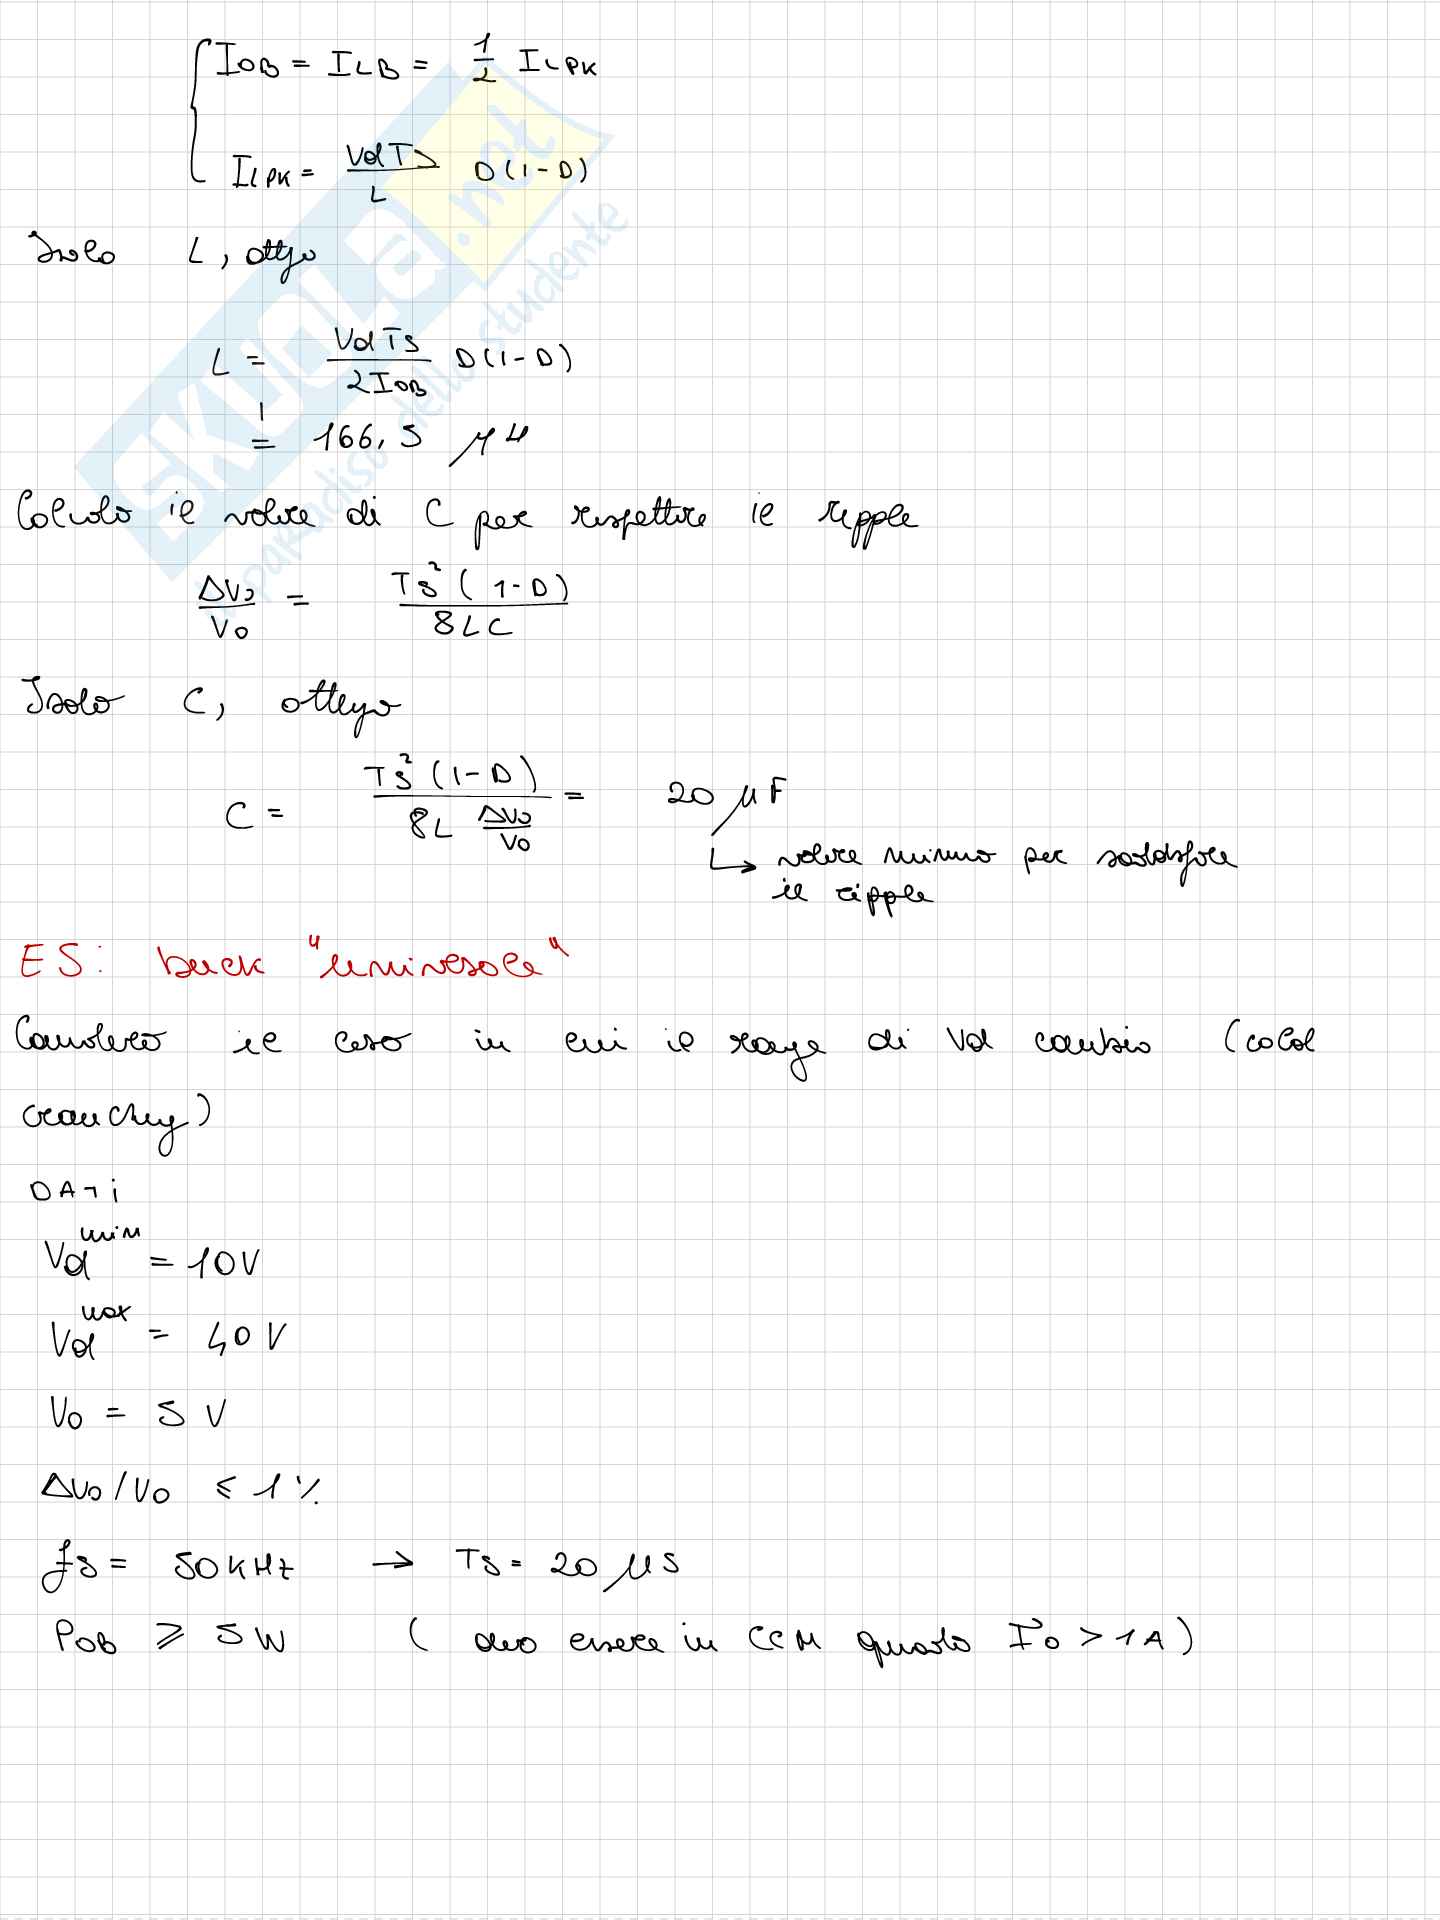 IOB = ILB = 1/2 ILPK
ILPK = VdTS/L D(1-D)
Isolo L, ottgo
L = VdTS/2IOB D(1-D)
= 166,5 μH
Calcolo il valore di C per rispettare il ripple
ΔVo/Vo = TS² (1-D)/8LC
Isolo C, ottengo
C = TS² (1-D)/8L ΔVo/Vo = 20 μF
↳ valore minimo per soddisfare
il ripple
ES: buck "universale"
Considero il caso in cui il range di Vd cambia (cold
cranching)
DATi
Vd min = 10V
Vd max = 40V
Vo = 5V
ΔVo/Vo ≤ 1%
fs = 50KHz → TS = 20 μs
POB ≥ 5W ( devo essere in CCM quando Io > 1A)
SKUOLA.net
il paradiso dello studente